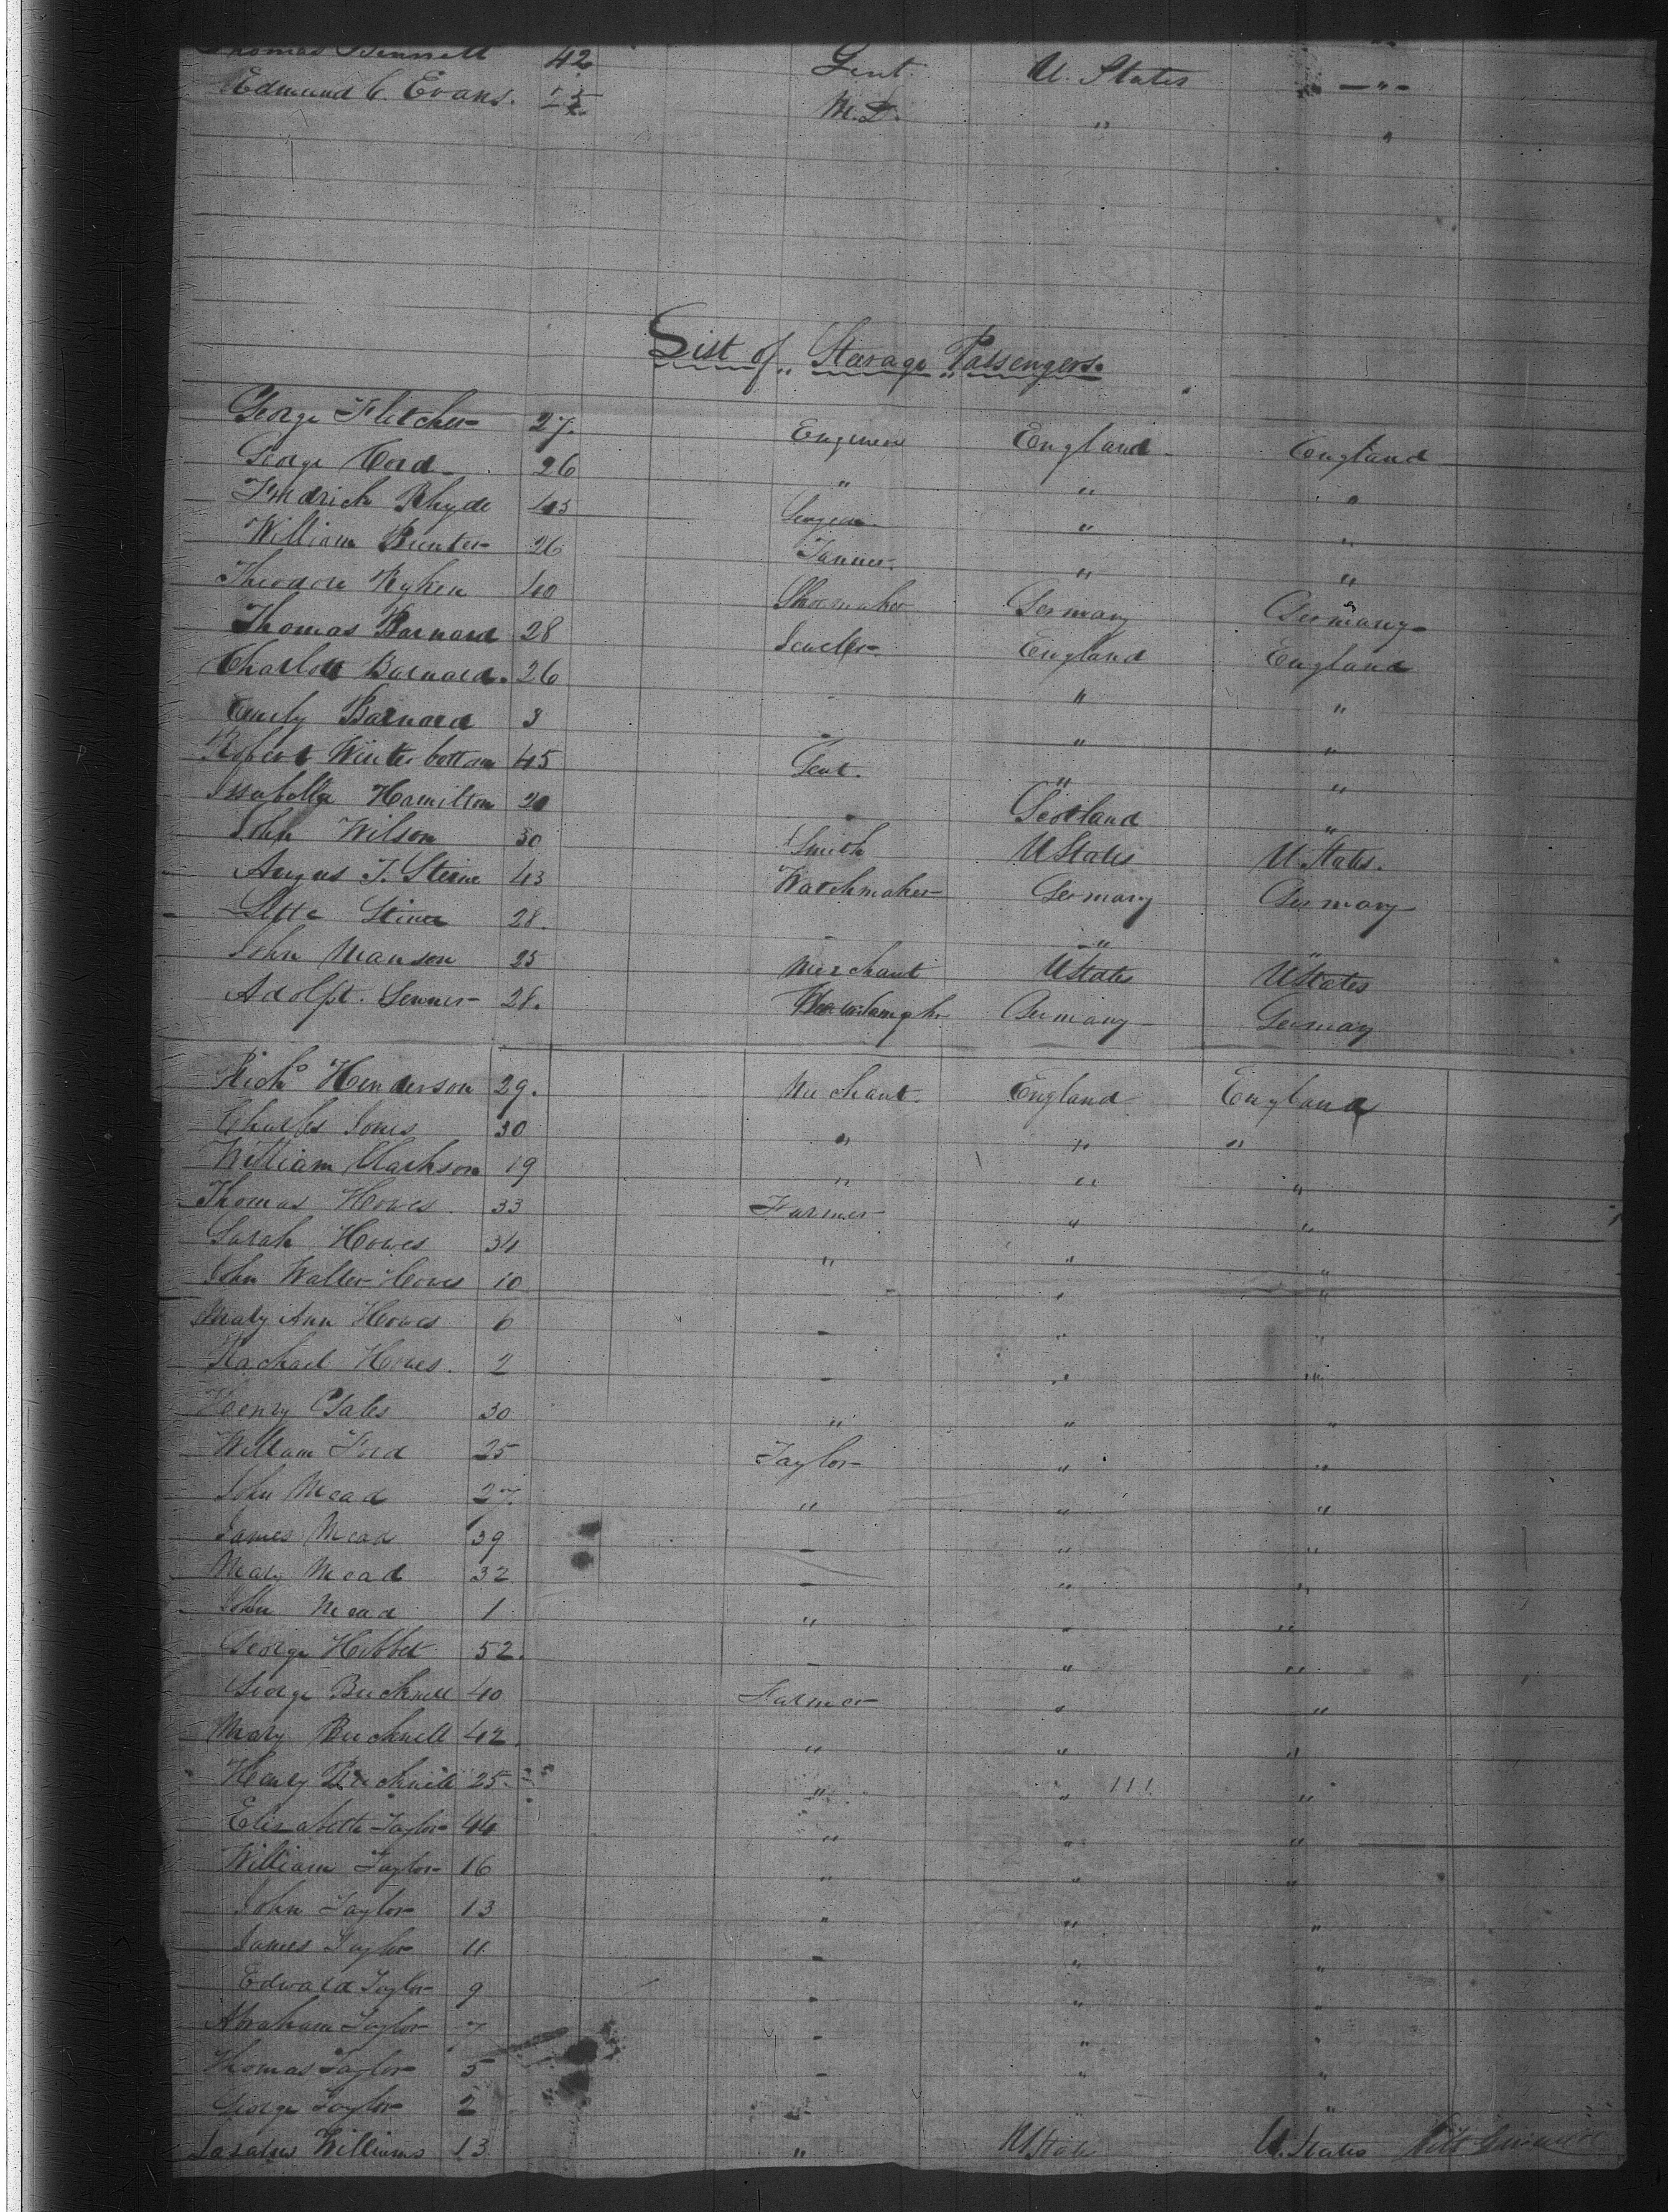 Thomas Bennett 42 Gent. U. States "
Edmund C. Evans. M.D. " "
List of Starage Passengers.
George Fletcher 27. Engineer England England
George Cord 26 " " "
Fredrich Rhyde 45 " "
William Bunter 26 Tanner. " "
Theodore Ryken 40 Shoemaker Germany Germany
Thomas Barnard 28 England England
Charlott Barnard. 26 " "
Emely Barnard 3 - " "
Robert Winterbottom 45 Gent. " "
Issabella Hamilton 20 - Scotland "
John Wilson 30 Smith U States U. States.
Augus T. Steine 43 Watchmaker Germany Germany
Stiner 28. - " "
John Manson 25 Merchant U States U States
Adolpt. 28. Germany Germany
Richd Henderson 29. Merchant. England England
Charles Jones 30 " " "
William Clarkson 19 " " "
Thomas Howes 33 Farmer " "
Sarah Howes 34 " " "
John Walter Howes 10 - " "
Mary Ann Howes 6 - " "
Rachael Howes. 2 - " "
Henry 30 " " "
William Ford 25 Taylor " "
John Mead 27. " " "
James Mead 39 - " "
Mary Mead 32 - " "
John Mead 1 " " "
George Hibbet 52. - " "
George Bucknell 40 Farmer " "
Mary Bucknell 42. " " "
Henry Bucknell 25. " " "
Elizabeth Taylor 44 " " "
William Taylor 16 " " "
John Taylor 13 " " "
James Taylor 11 - " "
Edward Taylor 9 - " "
Abraham Taylor 7 - " "
Thomas Taylor 5 - " "
George Taylor 2 - " "
Williams 13 " U States U. States